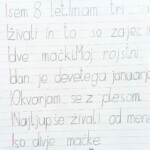 sem 8 let. Imam tri
živali in to so zajec in
dve mački. Moj rojstni
dan je devetega januarja
Okvarjam se z plesom.
Najljupše živali od mene
so divje mačke.